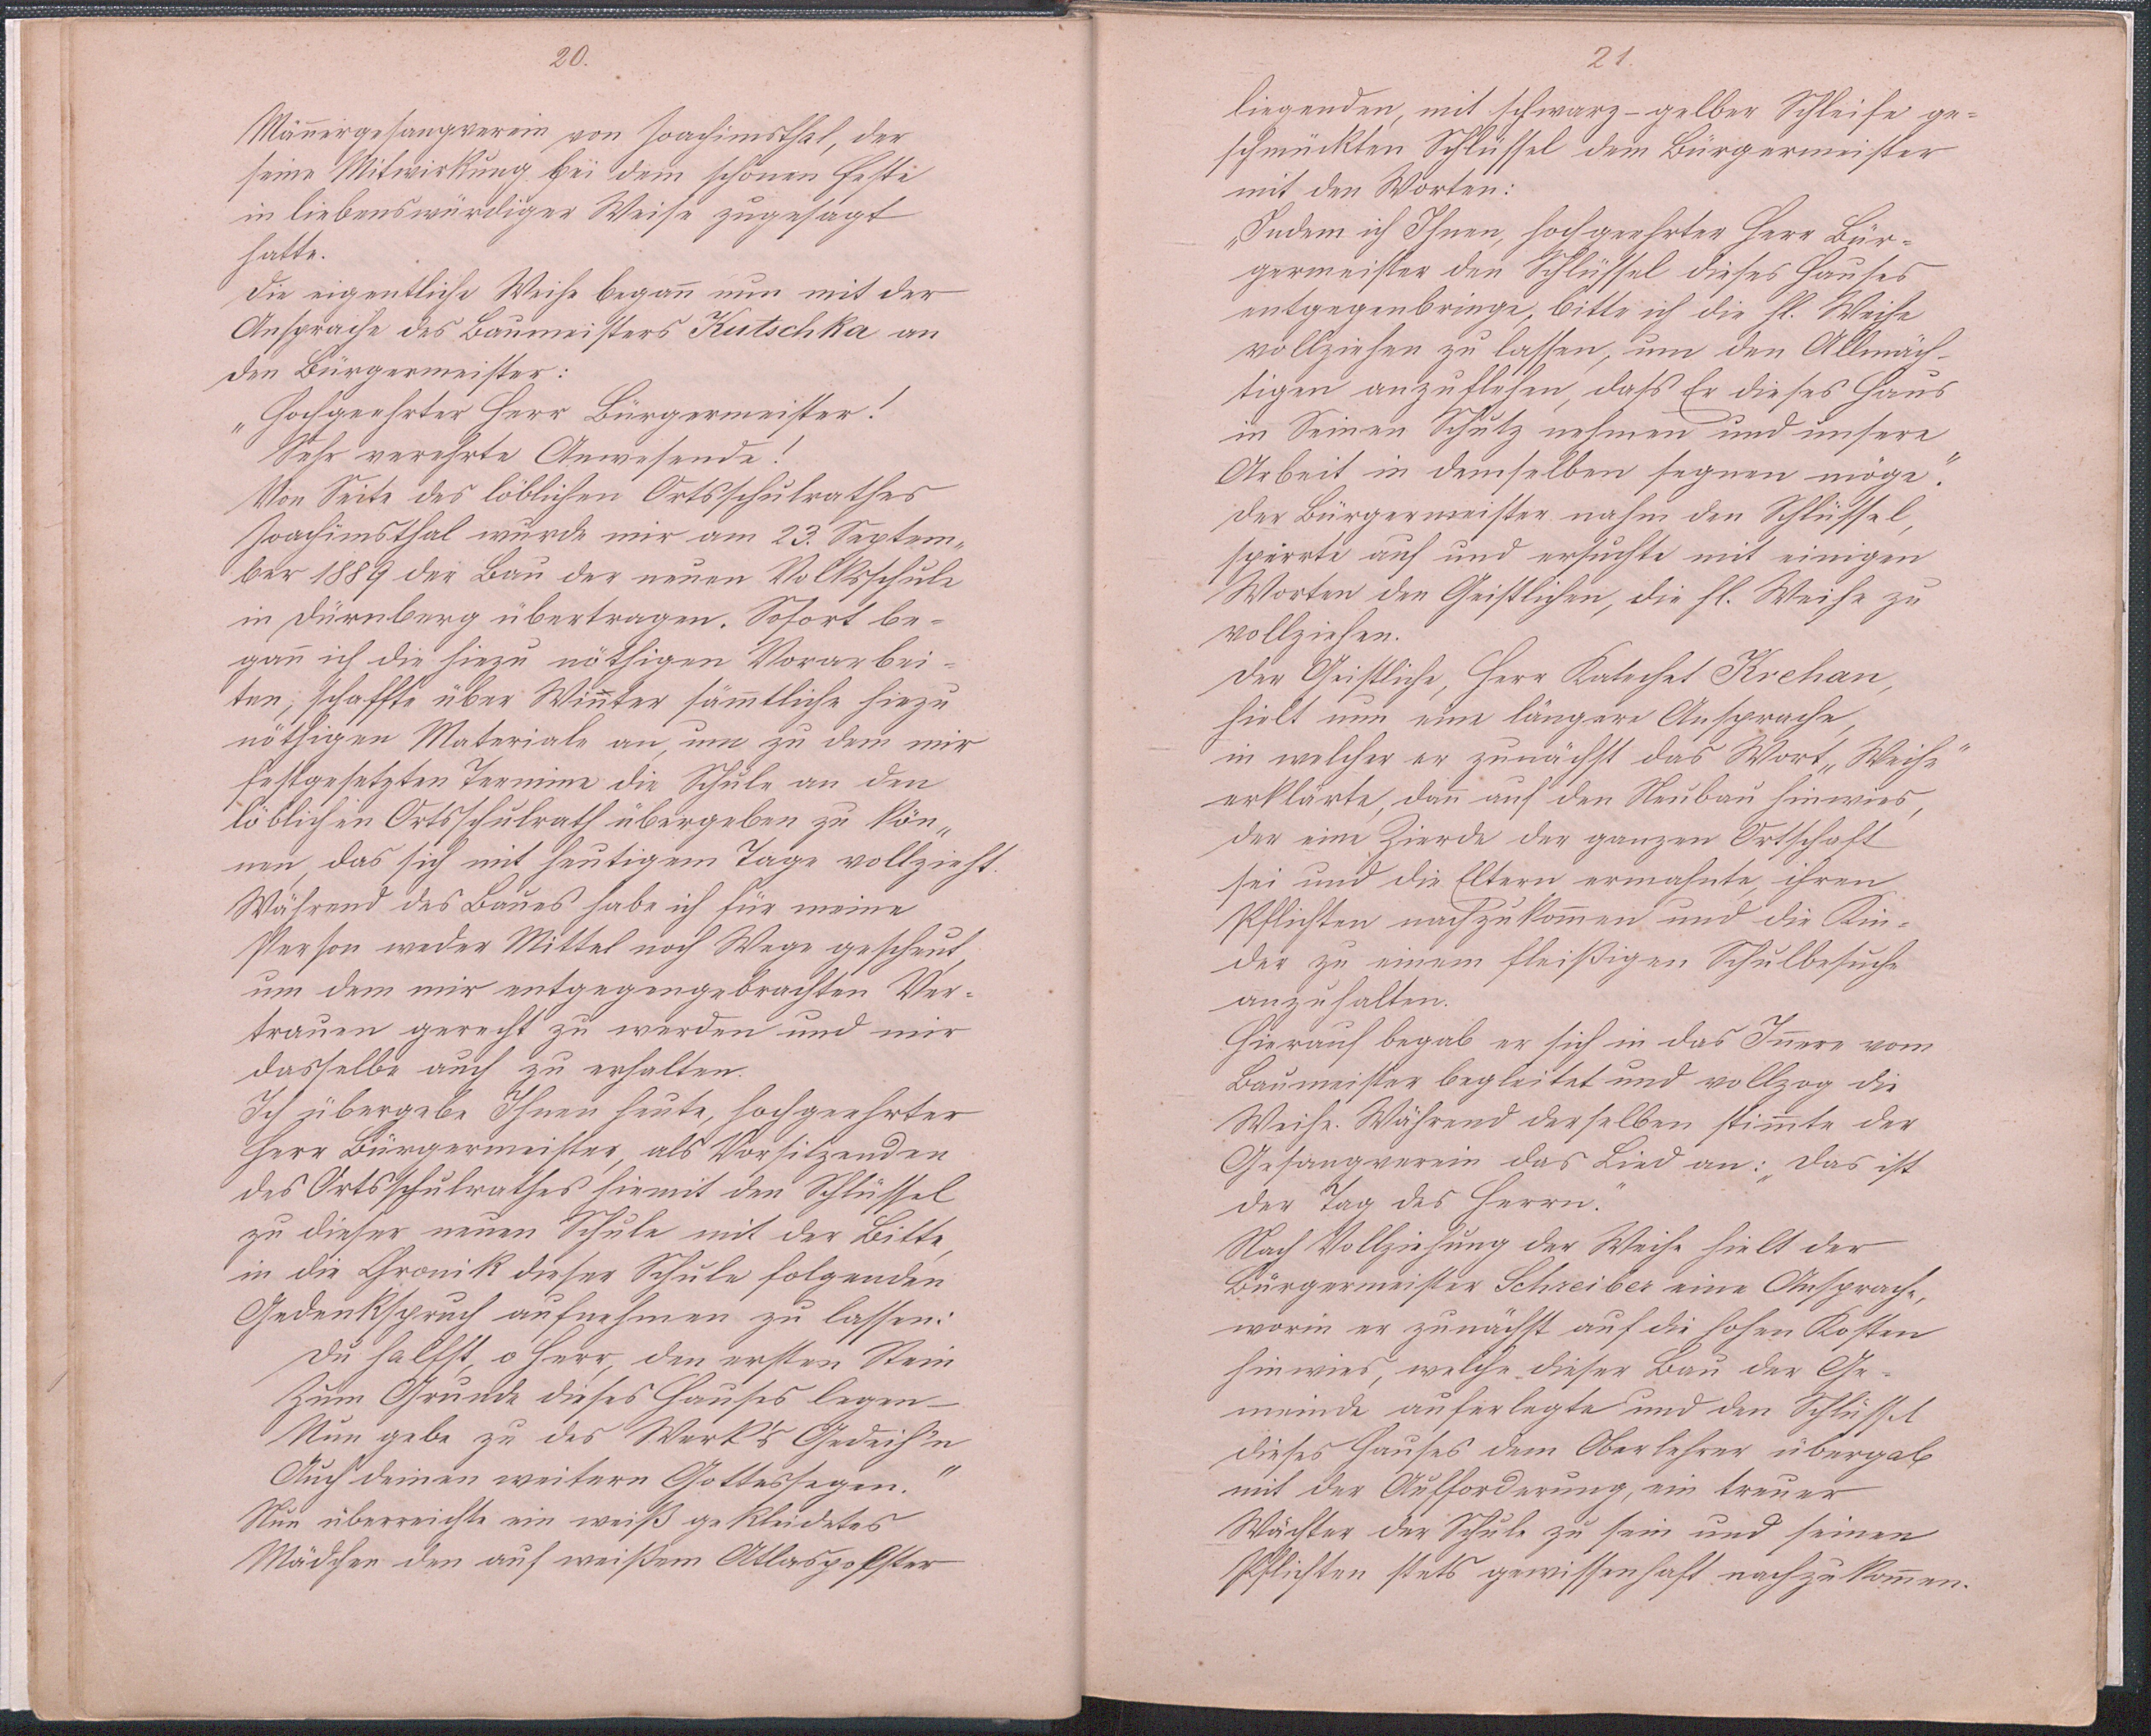 20.
Mañergesangverein von Joachimsthal, der
seine Mitwirkung bei dem schönen Feste
in liebenswürdiger Weise zugesagt
hatte.
Die eigentliche Weihe begañ nun mit der
Ansprache des Baumeisters Kutschka an
den Bürgermeister:
„Hochgeehrter Herr Bürgermeister!
Sehr verehrte Anwesende!
Von Seite des löblichen Ortsschulrathes
Joachimsthal wurde mir am 23. Septem„
ber 1889 der Bau der neuen Volksschule
in Dürnberg übertragen. Sofort be-
gañ ich die hiezu nöthigen Vorarbei-
ten, schaffte über Winter säm̄tliche hiezu
nöthigen Materiale an, um zu dem mir
festgesetzten Termine die Schule an den
löblichen Ortsschulrath übergeben zu kön„
nen, das sich mit heutigem Tage vollzieht.
Während des Baues habe ich für meine
Person weder Mittel noch Wege gescheut,
um dem mir entgegengebrachten Ver-
trauen gerecht zu werden und mir
dasselbe auch zu erhalten.
Ich übergebe Ihnen heute, hochgeehrter
Herr Bürgermeister, als Vorsitzenden
des Ortsschulrathes hiemit den Schlüssel
zu dieser neuen Schule mit der Bitte,
in die Chronik dieser Schule folgenden
Gedenkspruch aufnehmen zu lassen:
Du halfst, o Herr, den ersten Stein
Zum Grunde dieses Hauses legen –
Nun gebe zu des Werk's Gedeih'n
Auch deinen weitern Gottessegen."
Nun überreichte ein weiß gekleidetes
Mädchen den auf weißem Atlaspolster
21.
liegenden, mit schwarz-gelber Schleife ge-
schmückten Schlüssel dem Bürgermeister
mit den Worten:
„Indem ich Ihnen, hochgeehrter Herr Bür-
germeister den Schlüssel dieses Hauses
entgegenbringe, bitte ich die hl. Weihe
vollziehen zu lassen, um den Allmäch-
tigen anzuflehen, dass Er dieses Haus
in Seinen Schutz nehmen und unsere
Arbeit in demselben segnen möge."
Der Bürgermeister nahm den Schlüssel,
sperrte auf und ersuchte mit einigen
Worten den Geistlichen, die hl. Weihe zu
vollziehen.
Der Geistliche, Herr Katechet Krehan,
hielt nun eine längere Ansprache,
in welcher er zunächst das Wort „Weihe"
erklärte, dañ auf den Neubau hinwies,
der eine Zierde der ganzen Ortschaft
sei und die Eltern ermahnte, ihren
Pflichten nachzukom̄en und die Kin-
der zu einem fleißigen Schulbesuche
anzuhalten.
Hierauf begab er sich in das Iñere vom
Baumeister begleitet und vollzog die
Weihe. Während derselben stim̄te der
Gesangverein das Lied an: „Das ist
der Tag des Herrn."
Nach Vollziehung der Weihe hielt der
Bürgermeister Schreiber eine Ansprache,
worin er zunächst auf die hohen Kosten
hinwies, welche dieser Bau der Ge-
meinde auferlegte und den Schlüssel
dieses Hauses dem Oberlehrer übergab
mit der Aufforderung, ein treuer
Wächter der Schule zu sein und seinen
Pflichten stets gewissenhaft nachzukom̄en.